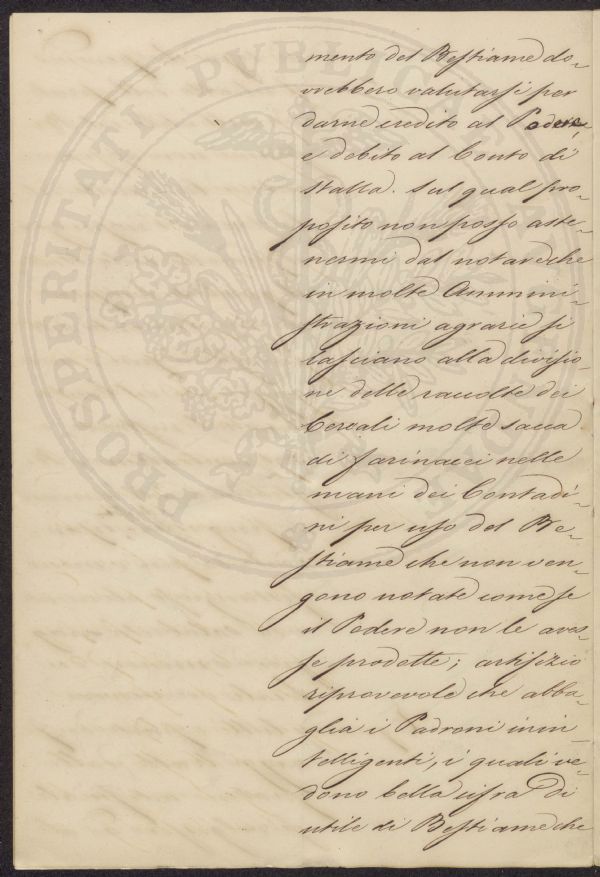 mento del Bestiame do-
vrebbero valutarsi per
darne credito al Podere,
e debito al Conto di
Stalla. Sul qual pro-
posito non posso aste-
nermi dal notare che
in molte Ammini-
strazioni agrarie si
lasciano alla divisio-
ne delle raccolte dei
Cereali molte sacca
di farinacei nelle
mani dei Contadi-
ni per uso del Be-
stiame che non ven-
gono notate come se
il Podere non le aves-
se prodotte; artifizio
riprovevole che abba-
glia i Padroni inin-
telligenti, i quali ve-
dono bella cifra di
utile di Bestiame che
PROSPERITATI PVBLICAE